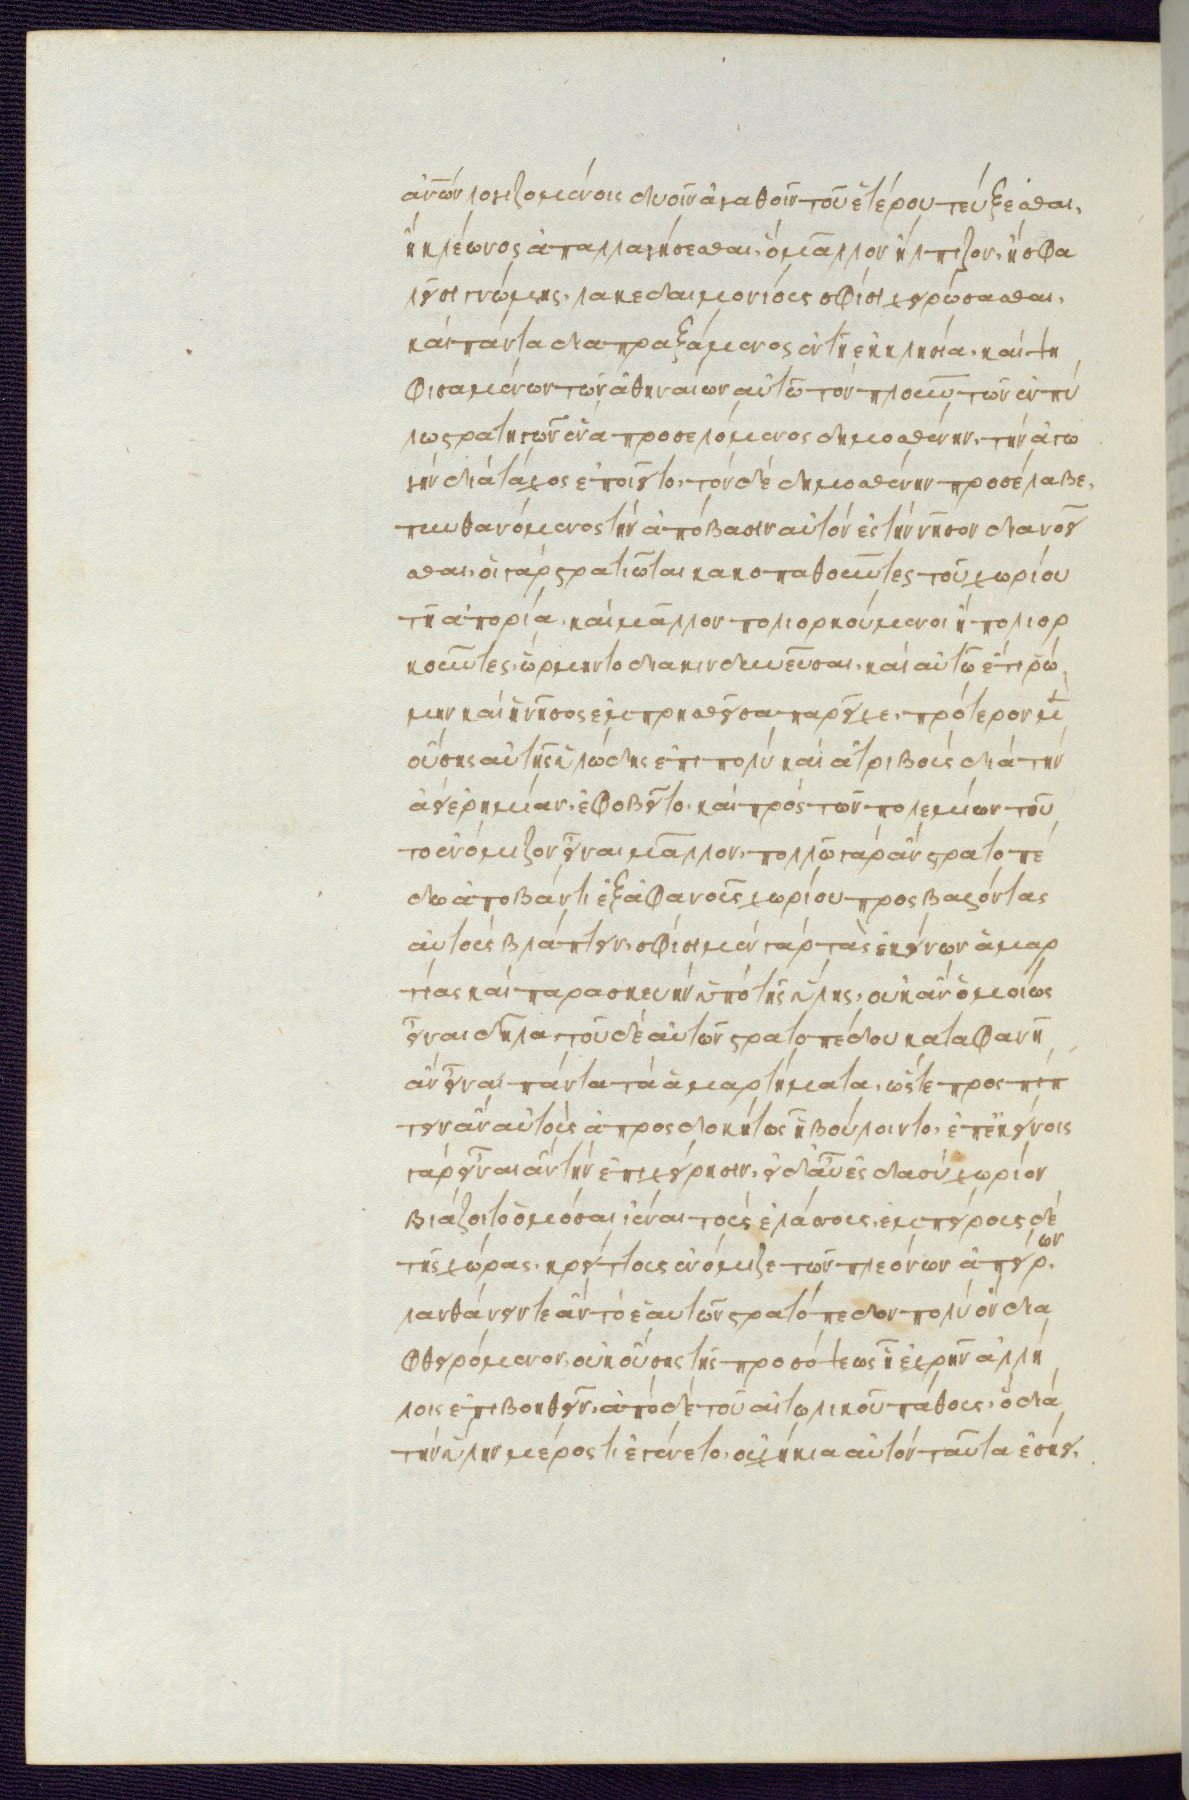 ἀν̅ων λογιζομένοις δυοῖν ἀγαθοῖν τοῦ ἑτέρου τεύξεσθαι,
ἢ κλέωνος ἀπαλλαγήσεσθαι, ὃ μᾶλλον ἤλπιζον, ἢ σφα
λεῖσι γνώμης, λακεδαιμονίους σφίσι χειρώσασθαι.
καὶ πάντα διαπραξάμενος ἐν τῇ ἐκκλησία, καὶ ψη
φισαμένων τῶν ἀθηναίων αὐτῶ τὸν πλοῦν, τῶν ἐν πύ
λω στρατηγῶν ἕνα προσελόμενος δημοσθένην, τὴν ἀγω
γὴν διὰ τάχος ἐποιεῖτο. τὸν δὲ δημοσθένην προσέλαβε,
πυνθανόμενος τὴν ἀπόβασιν αὐτὸν ἐς τὴν νῆσον διανοεῖ
σθαι. οἱ γὰρ στρατιῶται κακοπαθοῦντες τοῦ χωρίου
τῇ ἀπορία, καὶ μᾶλλον πολιορκούμενοι ἢ πολιορ
κοῦντες, ὥρμηντο διακινδυνεῦσαι. καὶ αὐτῶ ἔτι ῥώ
μην καὶ ἡ νῆσος ἐμπρησθεῖσα παρεῖχε. πρότερον μ(ὲν)
οὔσης αὐτῆς ὑλώδης ἐπιπολὺ καὶ ἀτριβοῦς διὰ τὴν
ἀεὶ ἐρημίαν, ἐφοβεῖτο, καὶ πρὸς τῶν πολεμίων τοῦ
το ἐνόμιζον εἶναι μᾶλλον. πολλῶ γὰρ ἂν στρατοπέ
δω ἀποβάντι ἐξ ἀφανοῦς χωρίου προσβαλόντας
αὐτοὺς βλάπτειν. σφίσι μὲν γὰρ τὰς ἐκείνων ἁμαρ
τίας καὶ παρασκευὴν ὑπὸ τῆς ὕλης, οὐκ ἂν ὁμοίως
εἶναι δῆλα, τοῦ δὲ αὐτῶν στρατοπέδου καταφανῆ
ἂν εἶναι πάντα τὰ ἁμαρτήματα, ὥστε προσπίπ
τειν ἂν αὐτοὺς ἀπροσδοκήτως ᾗ βούλοιντο. ἐπ' ἐκείνοις
γὰρ εἶναι ἂν τὴν ἐπιχείρησιν. εἰ δ' αὖ ἐς δασὺ χωρίον
βιάζοιτο ὁμόσαι ἰέναι, τοὺς ἐλάσσους, ἐμπείρους δὲ
τῆς χώρας, κρείττους ἐνόμιζε τῶν πλεόνων ἀπείρων.
λανθάνειν τε ἂν τὸ ἑαυτῶν στρατόπεδον πολὺ ὂν δια
φθειρόμενον, οὐκ οὔσης τῆς προσόψεως ᾗ ἐχρῆν ἀλλή
λοις ἐπιβοηθεῖν. ἀπὸ δὲ τοῦ αἰτωλικοῦ πάθους, ὃ διὰ
τὴν ὕλην μέρος τι ἐγένετο, οὐχ ἥκιστα αὐτὸν ταῦτα ἐσῄει.